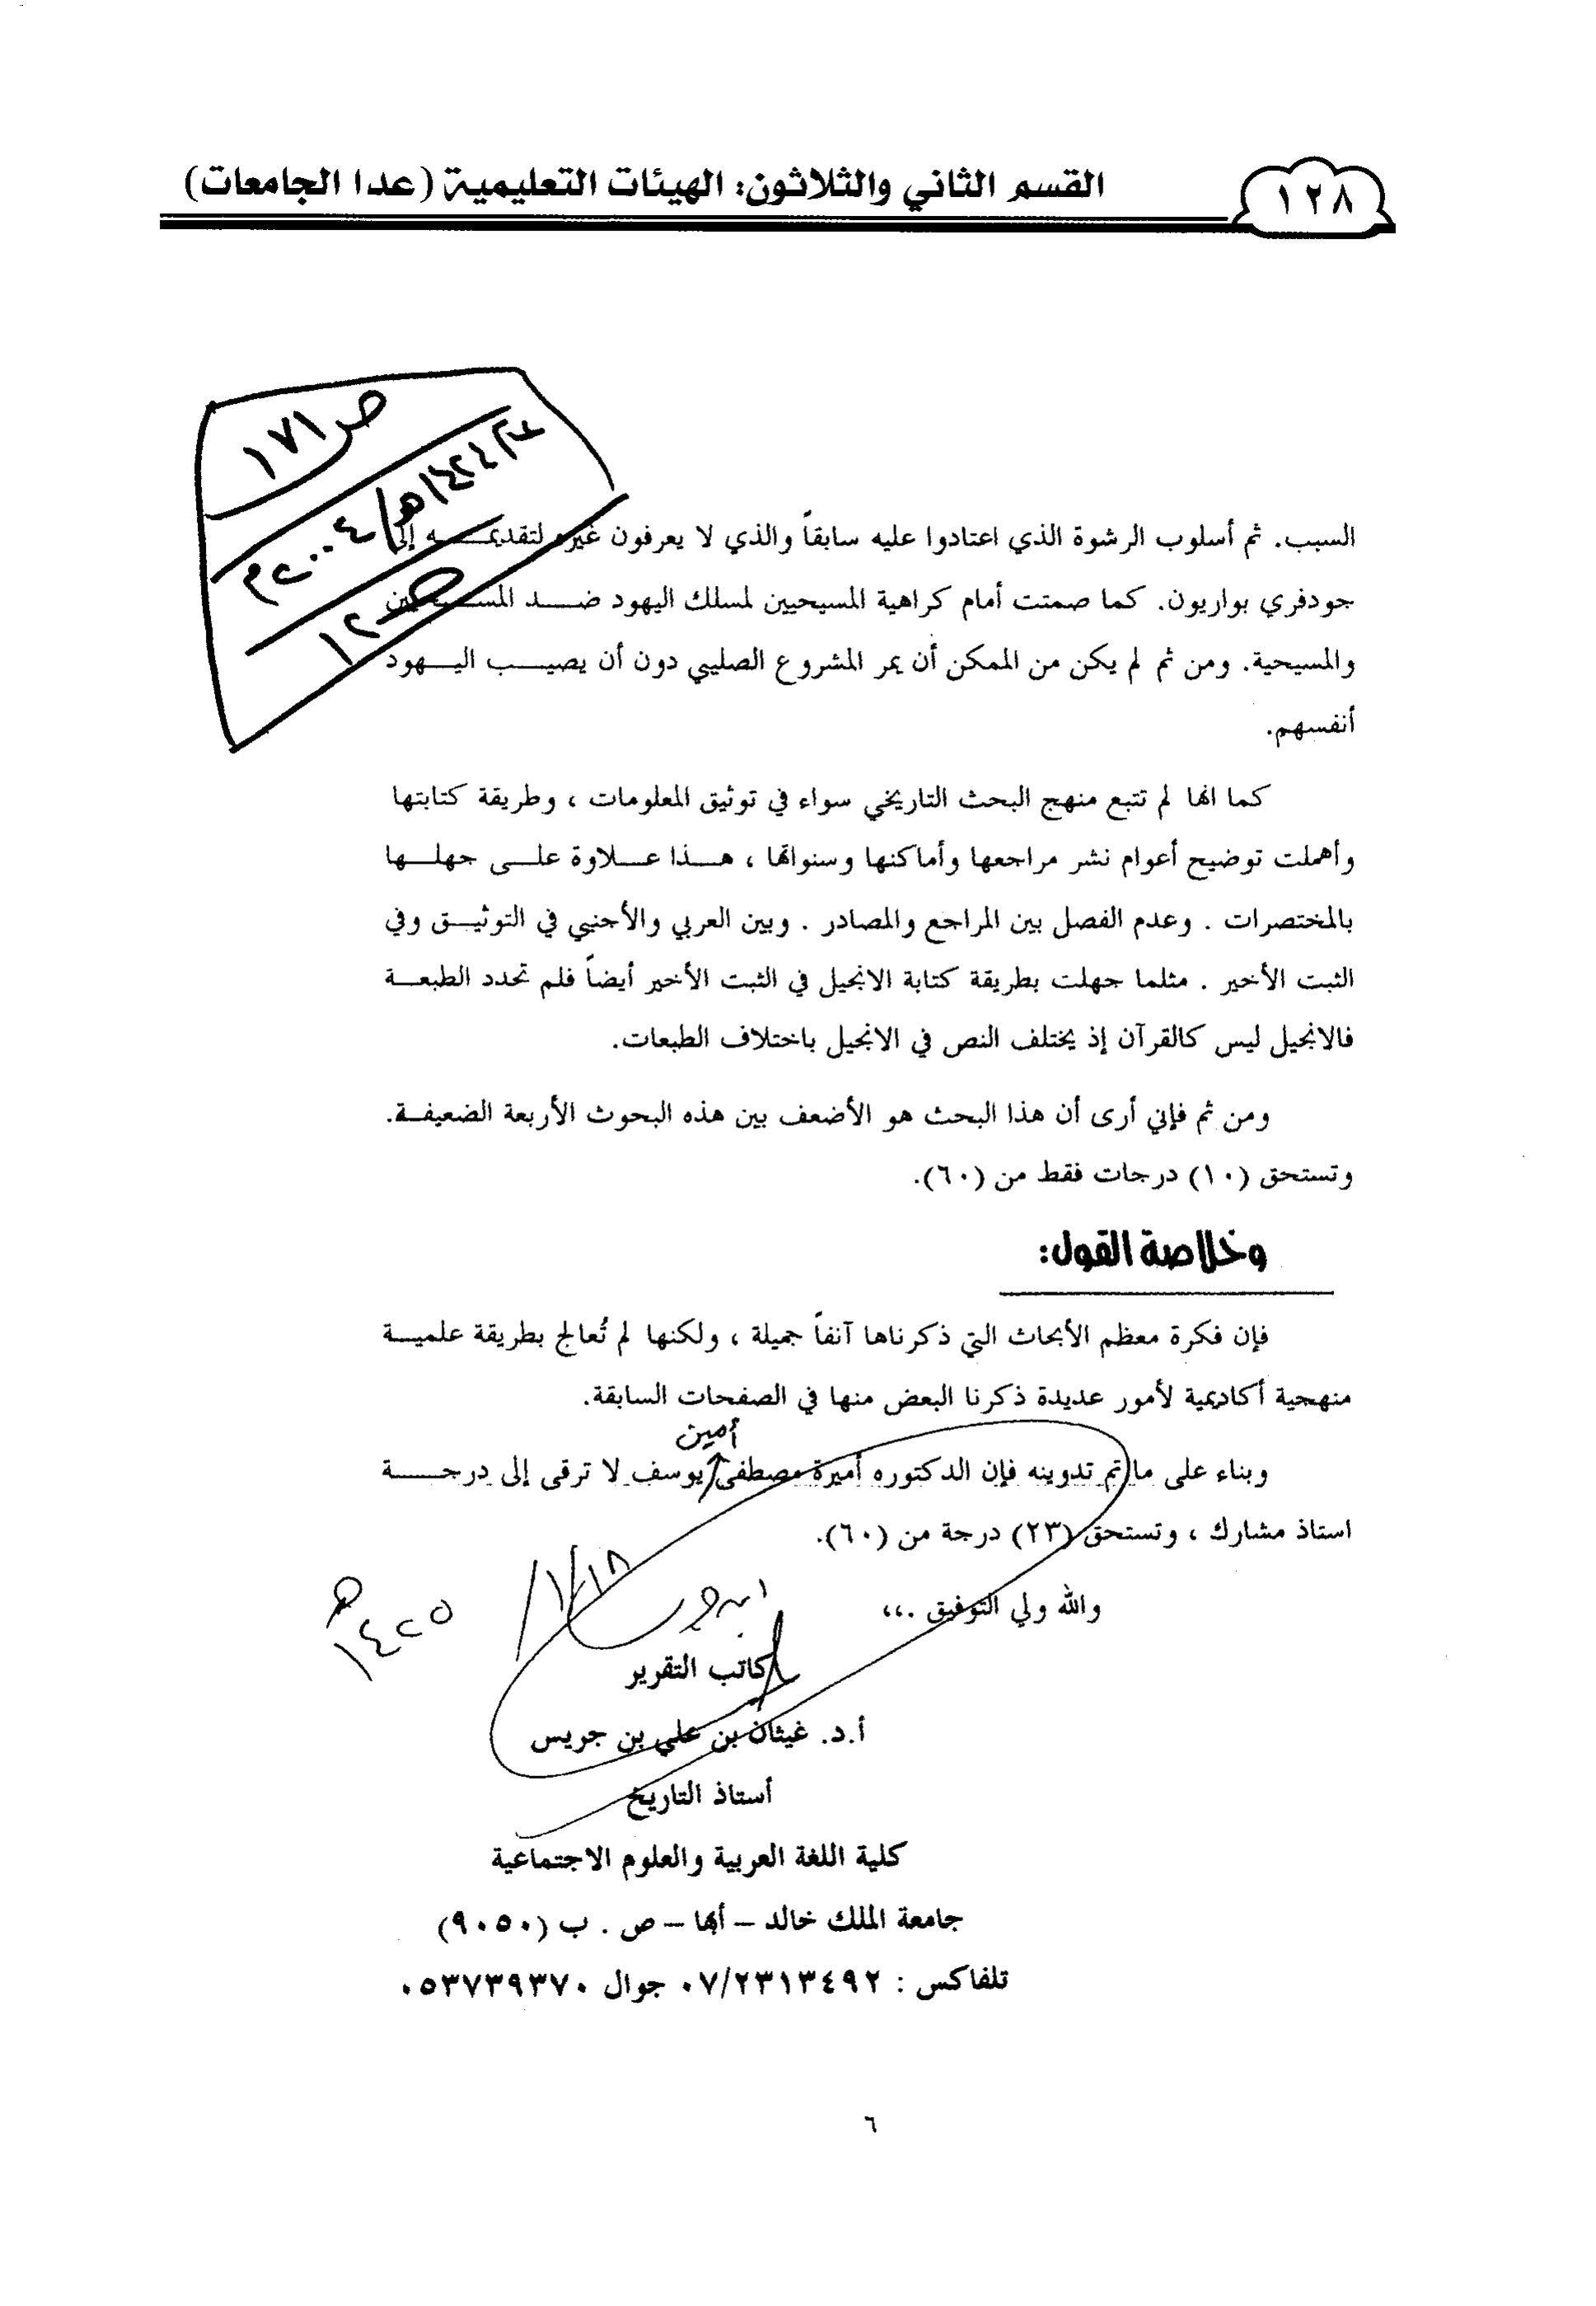 ١٢٨
القسم الثاني والثلاثون: الهيئات التعليمية (عدا الجامعات)
ص ١٧١
١٤٢٤هـ/٢٠٠٤م
السبب. ثم أسلوب الرشوة الذي اعتادوا عليه سابقاً والذي لا يعرفون غيره لتقديمـــــه إلى
جودفري بواريون. كما صمتت أمام كراهية المسيحيين لمسلك اليهود ضـــد المســيحيين
والمسيحية. ومن ثم لم يكن من الممكن أن يمر المشروع الصليبي دون أن يصيـــب اليـــهود
أنفسهم.
كما انها لم تتبع منهج البحث التاريخي سواء في توثيق المعلومات ، وطريقة كتابتها
وأهملت توضيح أعوام نشر مراجعها وأماكنها وسنواتها ، هـــذا عـــلاوة علـــى جهلـــها
بالمختصرات . وعدم الفصل بين المراجع والمصادر . وبين العربي والأجنبي في التوثيـــق وفي
الثبت الأخير . مثلما جهلت بطريقة كتابة الانجيل في الثبت الأخير أيضاً فلم تحدد الطبعـــة
فالانجيل ليس كالقرآن إذ يختلف النص في الانجيل باختلاف الطبعات.
ومن ثم فإني أرى أن هذا البحث هو الأضعف بين هذه البحوث الأربعة الضعيفـة.
وتستحق (١٠) درجات فقط من (٦٠).
وخلاصة القول:
فإن فكرة معظم الأبحاث التي ذكرناها آنفاً جميلة ، ولكنها لم تُعالج بطريقة علميـــة
منهجية أكاديمية لأمور عديدة ذكرنا البعض منها في الصفحات السابقة.
أمين
وبناء على ما تم تدوينه فإن الدكتوره أميرة مصطفى يوسف لا ترقى إلى درجـــــة
استاذ مشارك ، وتستحق (٢٣) درجة من (٦٠).
والله ولي التوفيق .،،
١٤٢٥هـ
كاتب التقرير
أ.د. غيثان بن علي بن جريس
أستاذ التاريخ
كلية اللغة العربية والعلوم الاجتماعية
جامعة الملك خالد – أبها – ص . ب (٩٠٥٠)
تلفاكس : ٠٧/٢٣١٣٤٩٢ جوال ٠٥٣٧٣٩٣٧٠
٦